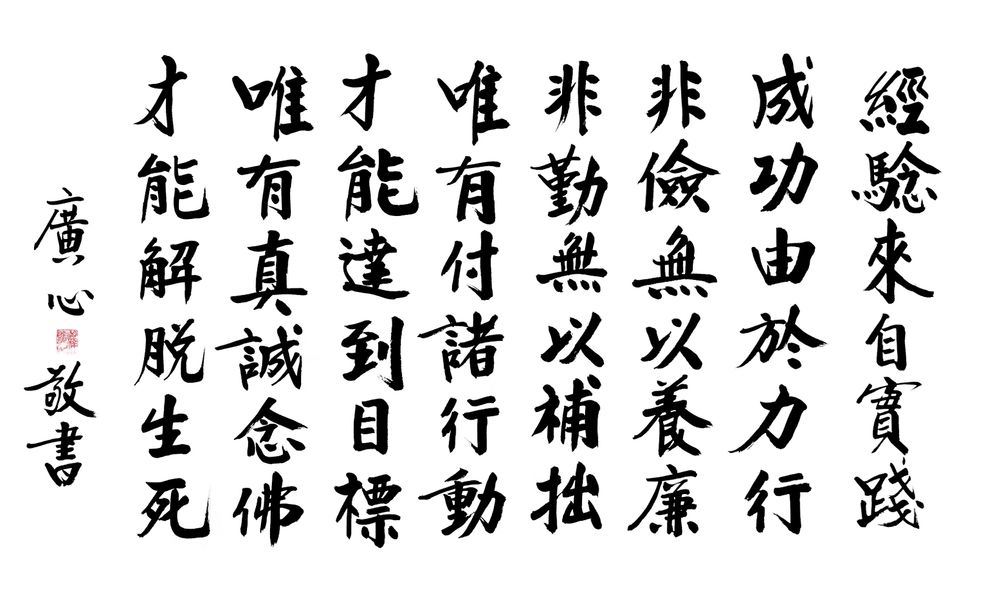 經驗來自實踐
成功由於力行
非儉無以養廉
非勤無以補拙
唯有付諸行動
才能達到目標
唯有真誠念佛
才能解脱生死
廣心敬書